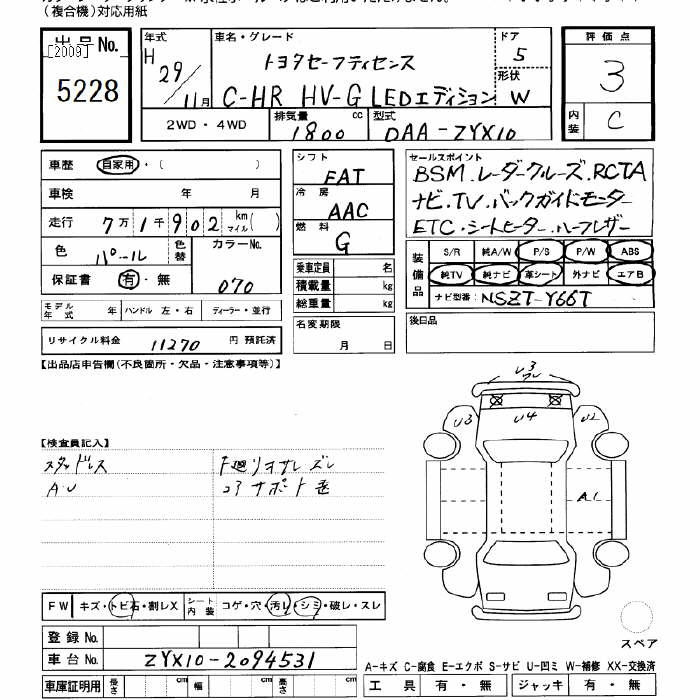 (複合機)対応用紙
出品No.
[2009]
5228
年式
H 29/11月
車名・グレード
トヨタセーフティセンス
C-HR HV-G LEDエディション
ドア
5
形状
W
評価点
3
内装
C
2WD・4WD
排気量 1800 cc
型式 DAA-ZYX10
車歴 自家用・( )
車検 年 月
走行 7万1千902 km マイル( )
色 パール
色替
カラーNo. 070
保証書 有・無
モデル年式 年 ハンドル 左・右 ディーラー・並行
リサイクル料金 11270 円 預託済
シフト
FAT
冷房
AAC
燃料
G
乗車定員 名
積載量 kg
総重量 kg
名変期限
月 日
セールスポイント
BSM.レーダークルーズ.RCTA
ナビ.TV.バックガイドモニター
ETC.シートヒーター.ハーフレザー
装備品
S/R 純A/W P/S P/W ABS
純TV 純ナビ 革シート 外ナビ エアB
ナビ型番: NSZT-Y66T
後日品
【出品店申告欄(不良箇所・欠品・注意事項等)】
【検査員記入】
スタッドレス
A.U
下廻りサビ
コアサポート
U3
U3
U4
U2
A1
FW キズ・トビ石・割レX シート内装 コゲ・穴・汚レ・シミ・破レ・スレ
登録No.
車台No. ZYX10-2094531
車庫証明用 長さ cm 幅 cm 高さ cm
スペア
A-キズ C-腐食 E-エクボ S-サビ U-凹ミ W-補修 XX-交換済
工具 有・無 ジャッキ 有・無